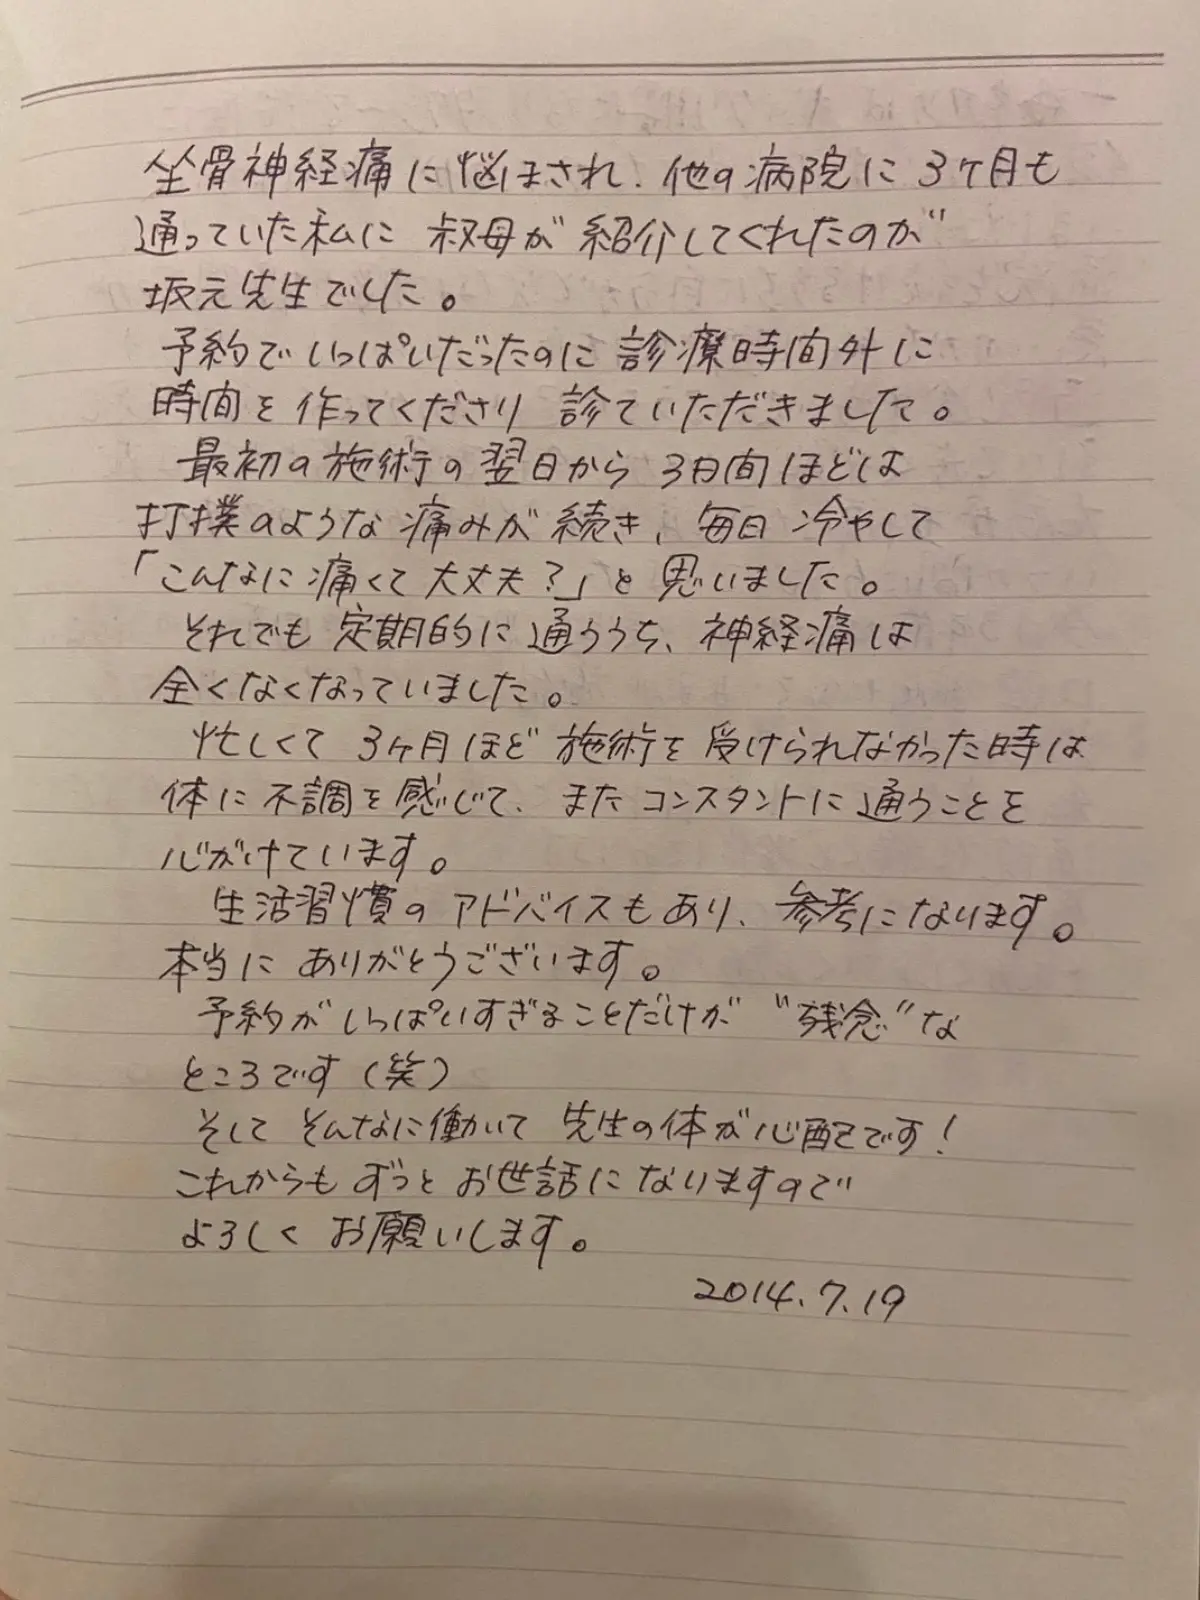 坐骨神経痛に悩まされ、他の病院に3ケ月も
通っていた私に 叔母が紹介してくれたのが
坂元先生でした。
予約でいっぱいだったのに 診療時間外に
時間を作ってくださり 診ていただきました。
最初の施術の翌日から 3日間ほどは
打撲のような痛みが続き、毎日冷やして
「こんなに痛くて大丈夫?」と思いました。
それでも定期的に通ううち、神経痛は
全くなくなっていました。
忙しくて 3ケ月ほど施術を受けられなかった時は
体に不調を感じて、またコンスタントに通うことを
心がけています。
生活習慣のアドバイスもあり、参考になります。
本当に ありがとうございます。
予約がいっぱいすぎることだけが "残念"な
ところです(笑)
そして そんなに働いて 先生の体が心配です!
これからもずっと お世話になりますので
よろしく お願いします。
2014.7.19